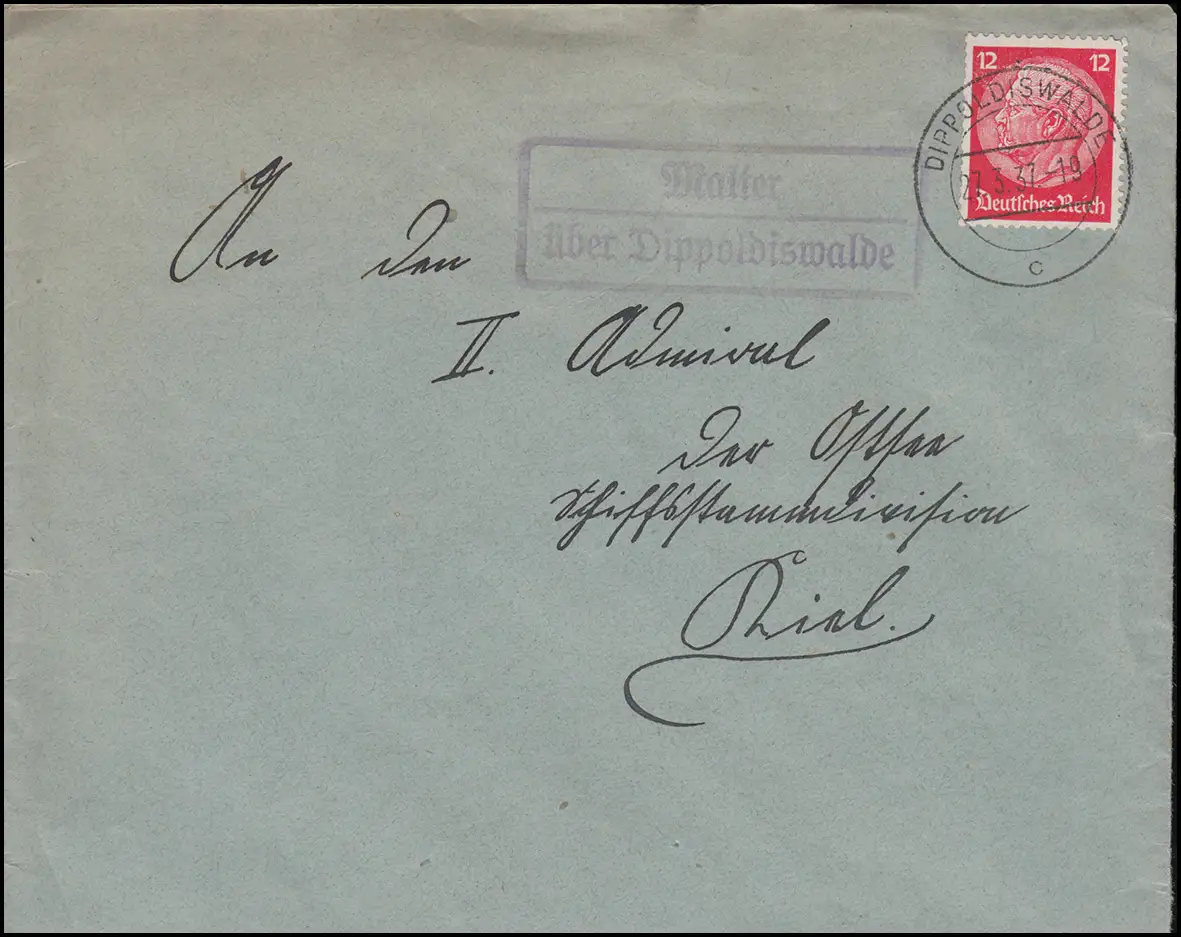 12 12
Deutsches Reich
DIPPOLDISWALDE
27.3.37-19
c
Malter
über Dippoldiswalde
An den
II. Admiral
der Ostsee
Schiffsstammdivision
Kiel.